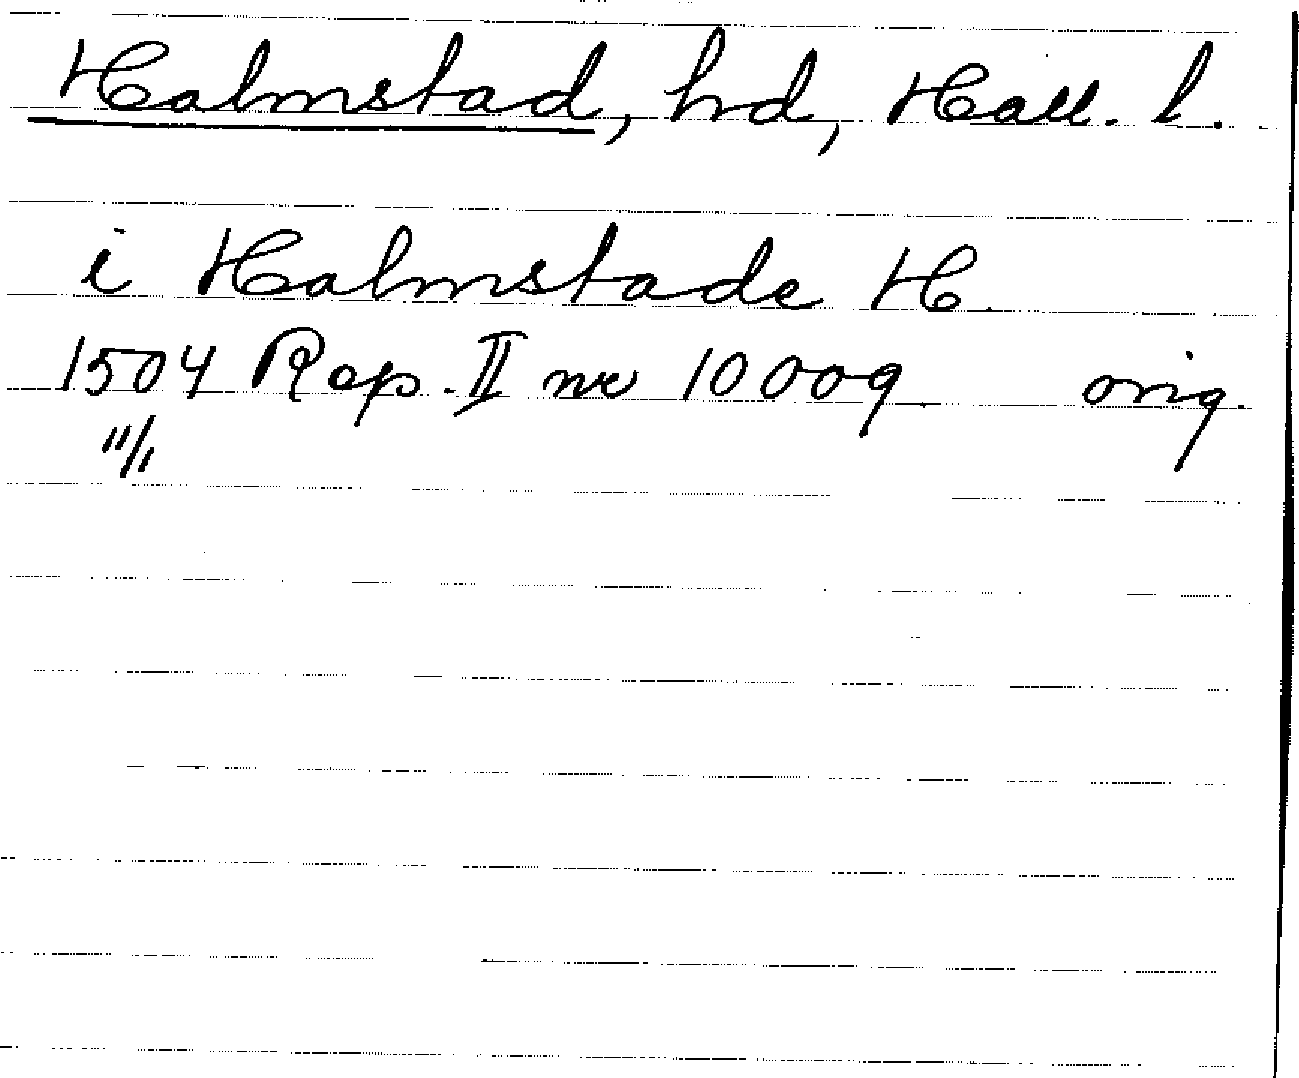 Halmstad, hd, Hall. l.
i Halmstade H.
1504 Rep. II nr 10009. orig.
11/1